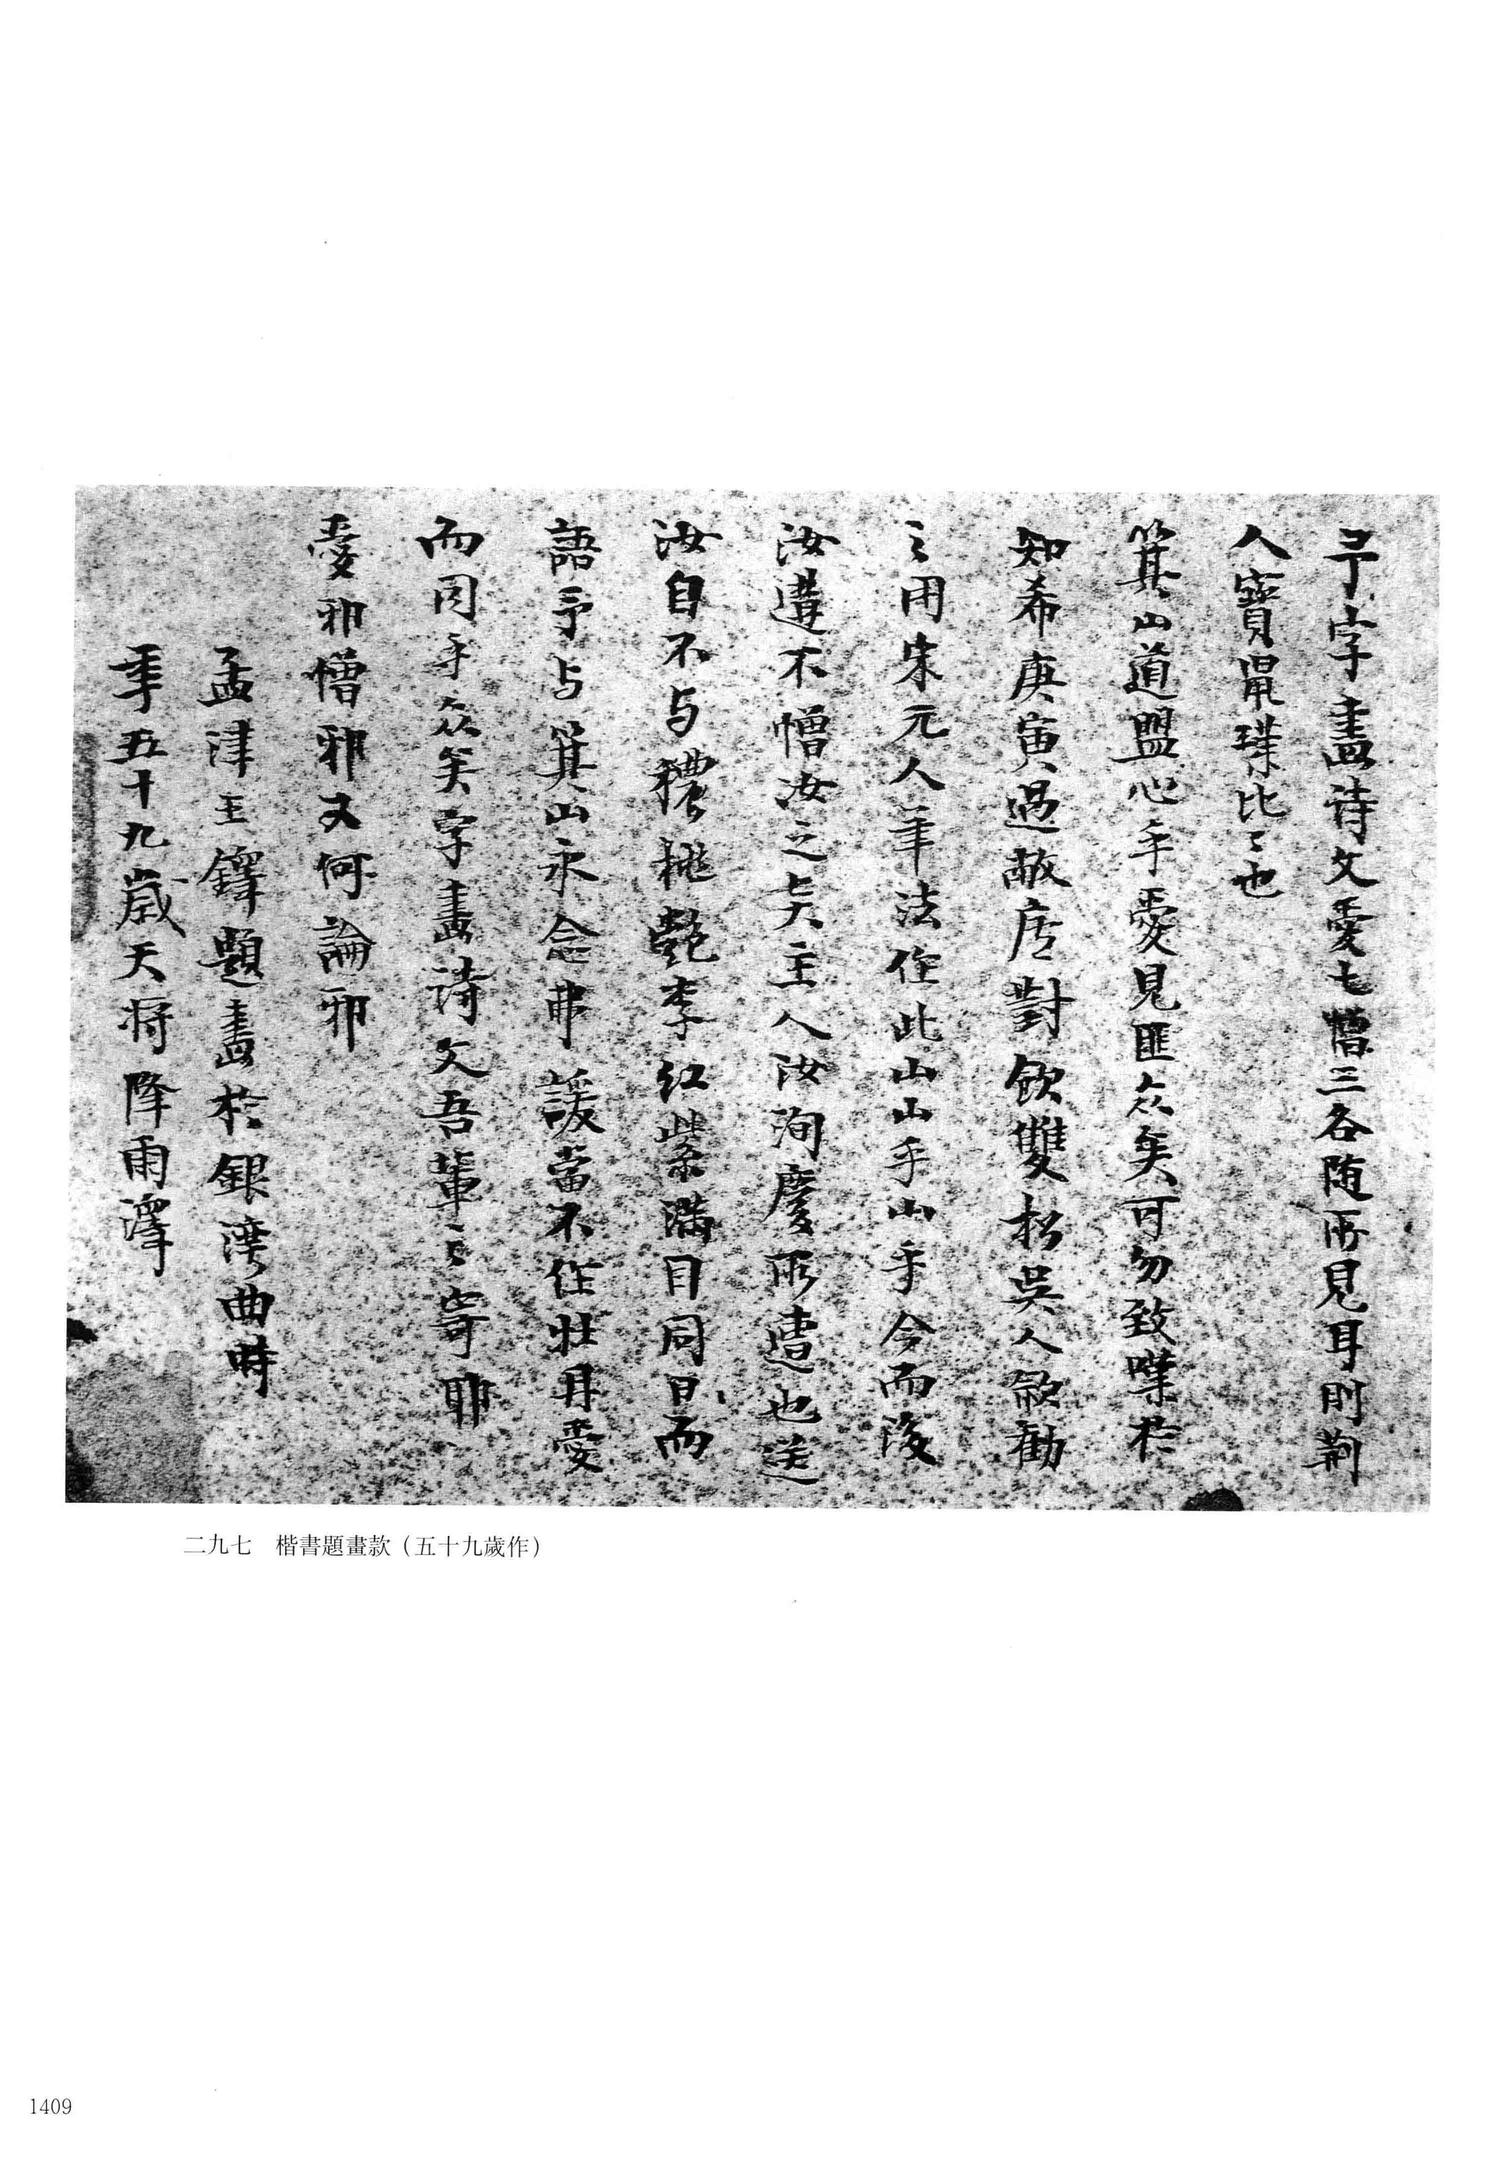 予字畫詩文愛七憎三各随所見耳則荆
人寶鼠璞比比也
箕山道盟心手愛見匪众矣可勿致嘆於
知希庚寅過敝居對飲雙松吳人歈勸
之用宋元人筆法作此山山乎山乎今而後
汝遘不憎汝之奭主人汝洵慶所遭也送
汝自不与穠桃艷李紅紫滿目同日而
語予与箕山永念弗諼當不在牡丹愛
而同乎众矣字畫詩文吾輩之寄耶
愛邪憎邪又何論邪
孟津王鐸題畫於銀灣曲時
年五十九歲天將降雨澤
二九七　楷書題畫款（五十九歲作）
1409